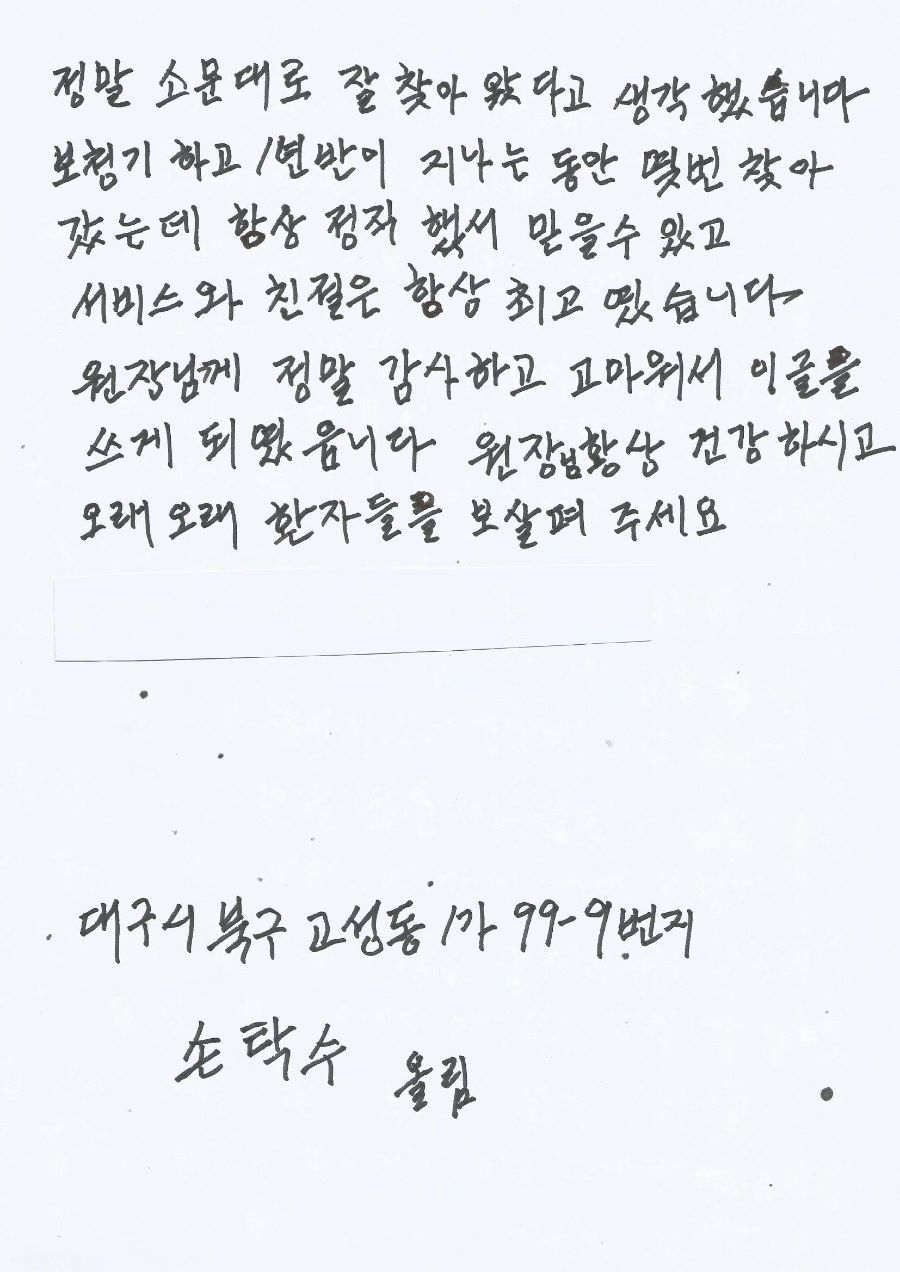 정말 소문대로 잘 찾아 왔다고 생각 했습니다
보청기 하고 1년반이 지나는 동안 몇번 찾아
갔는데 항상 정직 했서 믿을수 있고
서비스와 친절은 항상 최고 였습니다
원장님께 정말 감사하고 고마워서 이글을
쓰게 되였읍니다 원장님항상 건강하시고
오래오래 환자들을 보살펴 주세요
대구시 북구 고성동 1가 99-9번지
손탁수 올림